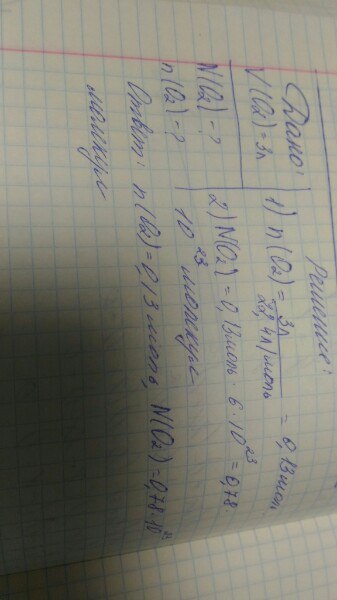 Решение:
Дано:
V(O₂) = 3л
N(O₂) - ?
n(O₂) - ?
1) n(O₂) = 3л / 22,4л/моль = 0,13моль
2) N(O₂) = 0,13моль · 6 · 10²³ = 0,78 ·
10²³ молекул
Ответ: n(O₂) = 0,13 моль, N(O₂) = 0,78 · 10²³
молекул